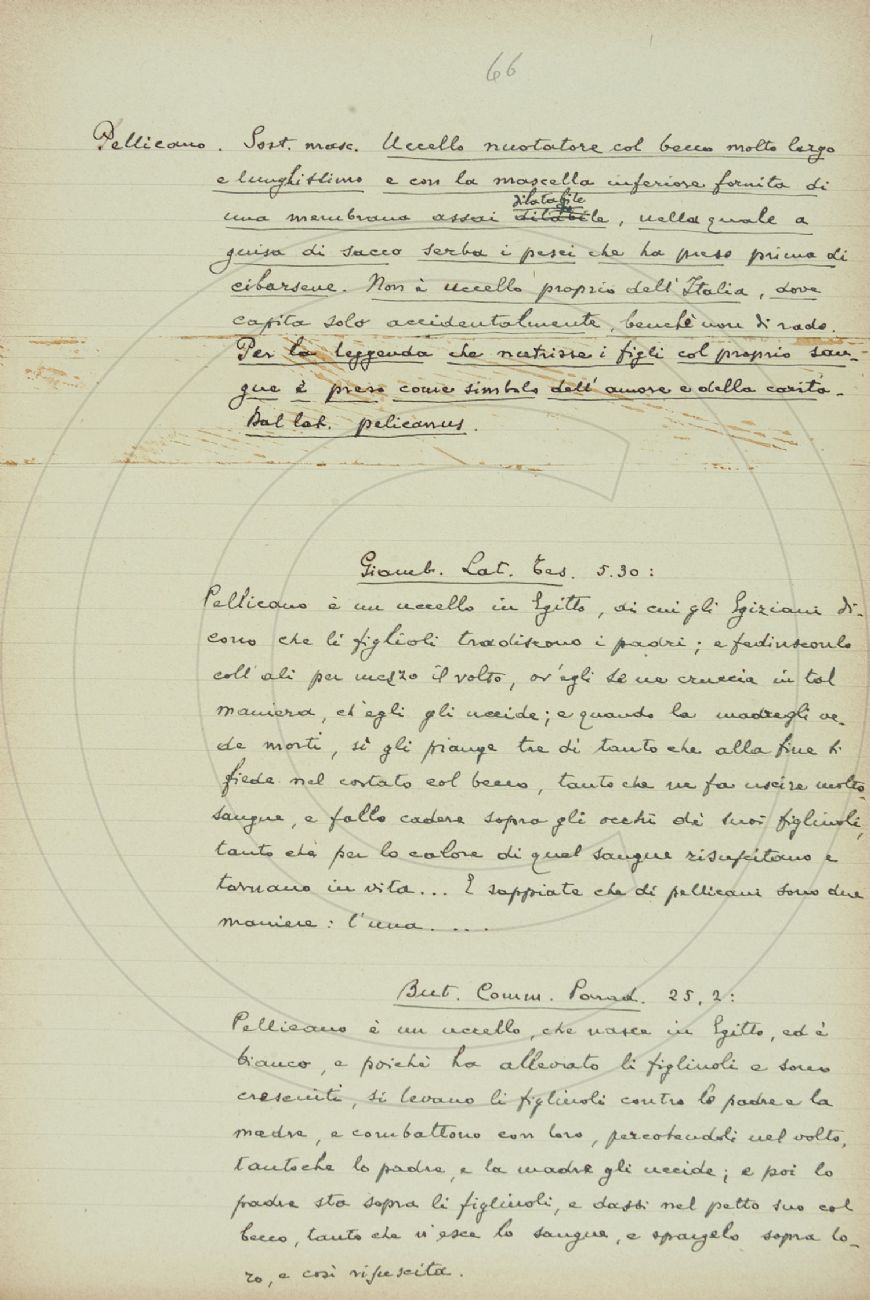 66
Pellicano. Sost. masc. Uccello nuotatore col becco molto largo
e lunghissimo e con la mascella inferiore fornita di
dilatabile
una membrana assai dilatibile, nella quale a
guisa di sacco serba i pesci che ha preso prima di
cibarsene. Non è uccello proprio dell'Italia, dove
capita solo accidentalmente, benchè non di rado.
Per la leggenda che nutrisse i figli col proprio san-
gue è preso come simbolo dell'amore e della carità.
Dal lat. pelicanus.
Giamb. Lat. Tes. 5.30:
Pellicano è un uccello in Egitto, di cui gli Egiziani di-
cono che li figlioli tradiscono i padri; e fedinsconlo
coll'ali per mezzo il volto, ov'egli se ne cruccia in tal
maniera, ch'egli gli uccide; e quando la madre gli ve-
de morti, sì gli piange tre dì tanto che alla fine si
fiede nel costato col becco, tanto che ne fa uscire molto
sangue, e fallo cadere sopra gli occhi de' suoi figliuoli,
tanto che per lo calore di quel sangue risuscitano e
tornano in vita... E sappiate che di pellicani sono due
maniere: l'una....
But. Comm. Parad. 25, 2:
Pellicano è un uccello, che nasce in Egitto, ed è
bianco, e poichè ha allevato li figliuoli e sono
cresciuti, si levano li figliuoli contro lo padre e la
madre, e combattono con loro, percotendoli nel volto,
tantoche lo padre, e la madre gli uccide; e poi lo
padre sta sopra li figliuoli, e dassi nel petto suo col
becco, tanto che n'esce lo sangue, e spargelo sopra lo-
ro, e così risuscita.